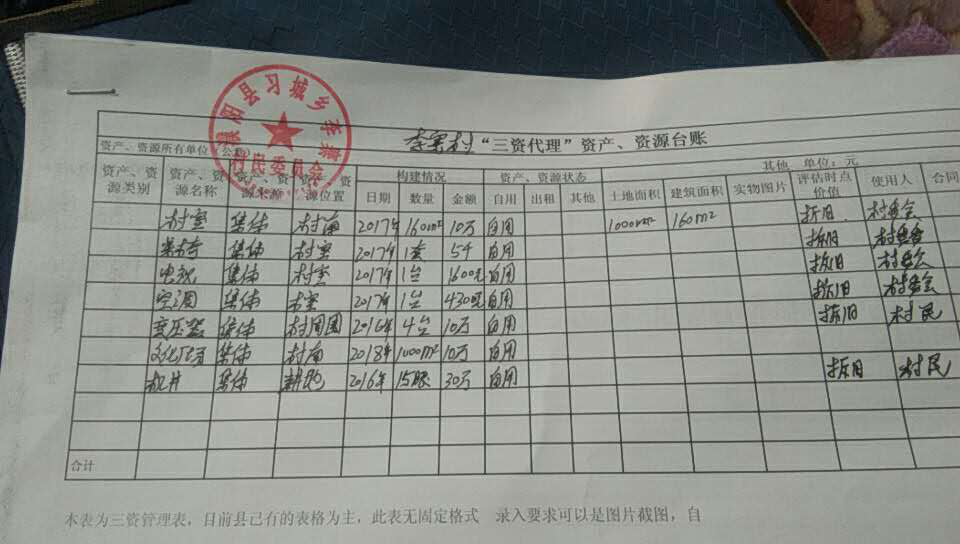 濮阳县习城乡李寨
村民委员会
李寨村“三资代理”资产、资源台账
资产、资源所有单位（公章） 其他 单位：元
资产、资源类别 资产、资源名称 资产、资源来源 资产、资源位置 构建情况 资产、资源状态
日期 数量 金额 自用 出租 其他 土地面积 建筑面积 实物图片 评估时点价值 使用人 合同
村室 集体 村南 2017年 160m² 10万 自用 1000m² 160m² 折旧 村委会
集体 村室 2017年 1套 5千 自用 折旧 村委会
电视 集体 村室 2017年 1台 1600元 自用 折旧 村委会
空调 集体 村室 2017年 1台 4300元 自用 折旧 村委会
变压器 集体 村周围 2016年 4台 10万 自用 折旧 村民
文化广场 集体 村南 2018年 1000m² 10万 自用
机井 集体 耕地 2016年 15眼 30万 自用 折旧 村民
合计
本表为三资管理表，目前县已有的表格为主，此表无固定格式 录入要求可以是图片截图，自